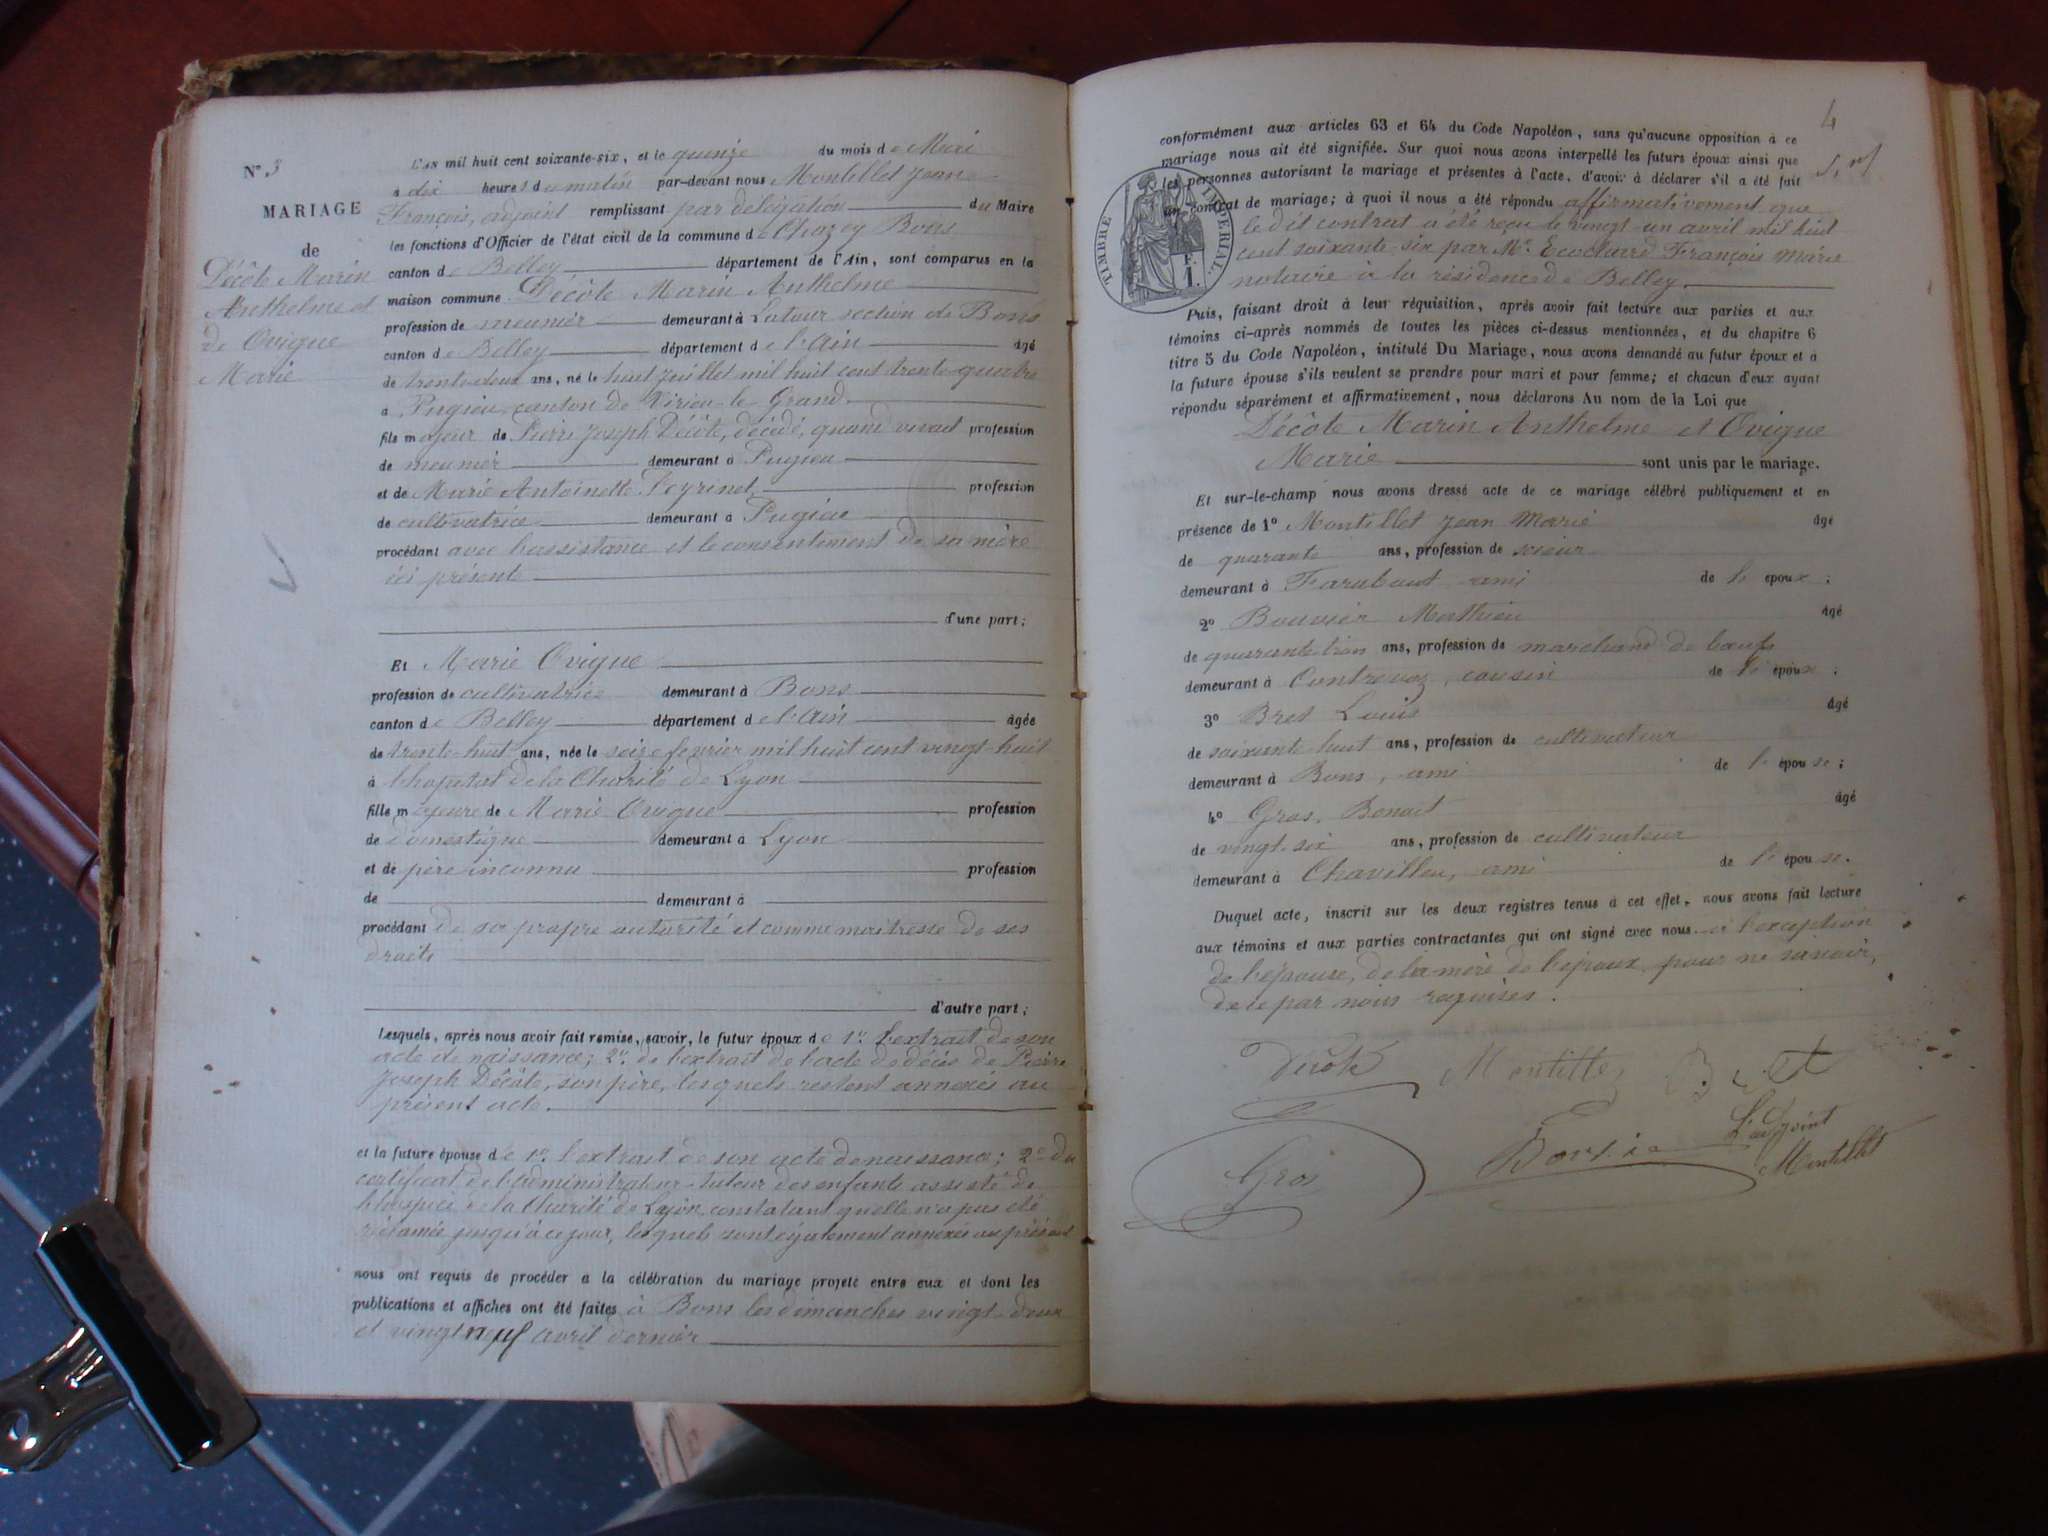 N° 3
MARIAGE
de
Décôte Marin
Anthelme et
de Ovigue
Marie
L'AN mil huit cent soixante-six, et le quinze du mois de Mai
à dix heures du matin par-devant nous Montillet Jean
François, adjoint remplissant par délégation du Maire
les fonctions d'Officier de l'état civil de la commune de Chazey Bons
canton de Belley département de l'Ain, sont comparus en la
maison commune Décôte Marin Anthelme
profession de meunier demeurant à Latour section de Bons
canton de Belley département de l'Ain âgé
de trente-deux ans, né le huit juillet mil huit cent trente quatre
à Pugieu, canton de Virieu-le-Grand
fils majeur de Pierre Joseph Décôte, décédé, quand vivait profession
de meunier demeurant à Pugieu
et de Marie Antoinette Peyrinet profession
de cultivatrice demeurant à Pugieu
procédant avec l'assistance et le consentement de sa mère
ici présente
d'une part;
Et Marie Ovigue
profession de cultivatrice demeurant à Bons
canton de Belley département de l'Ain âgée
de trente-huit ans, née le seize fevrier mil huit cent vingt-huit
à l'hopital de la Charité de Lyon
fille majeure de Marie Ovigue profession
de domestique demeurant à Lyon
et de père inconnu profession
de demeurant à
procédant de sa propre autorité et comme maitresse de ses
droits
d'autre part;
Lesquels, après nous avoir fait remise, savoir, le futur époux de 1° l'extrait de son
acte de naissance; 2° de l'extrait de l'acte de décès de Pierre
Joseph Décôte, son père, lesquels restent annexés au
présent acte.
et la future épouse de 1° l'extrait de son acte de naissance; 2° du
certificat de l'administrateur-tuteur des enfants assisté de
l'hospice de la Charité de Lyon constatant qu'elle n'a pas été
réclamée jusqu'à ce jour, lesquels sont également annexés au présent
nous ont requis de procéder à la célébration du mariage projeté entre eux et dont les
publications et affiches ont été faites à Bons les dimanches vingt-deux
et vingt neuf avril dernier
4
conformément aux articles 63 et 64 du Code Napoléon, sans qu'aucune opposition à ce
mariage nous ait été signifiée. Sur quoi nous avons interpellé les futurs époux ainsi que
les personnes autorisant le mariage et présentes à l'acte, d'avoir à déclarer s'il a été fait
un contrat de mariage; à quoi il nous a été répondu affirmativement que
le dit contrat a été reçu le vingt-un avril mil huit
cent soixante-six par Me Ecochard François Marie
notaire à la résidence de Belley.
TIMBRE IMPÉRIAL
1 F.
Puis, faisant droit à leur réquisition, après avoir fait lecture aux parties et aux
témoins ci-après nommés de toutes les pièces ci-dessus mentionnées, et du chapitre 6
titre 5 du Code Napoléon, intitulé Du Mariage, nous avons demandé au futur époux et à
la future épouse s'ils veulent se prendre pour mari et pour femme; et chacun d'eux ayant
répondu séparément et affirmativement, nous déclarons Au nom de la Loi que
Décôte Marin Anthelme et Ovigue
Marie sont unis par le mariage.
Et sur-le-champ nous avons dressé acte de ce mariage célébré publiquement et en
présence de 1° Montillet Jean Marie âgé
de quarante ans, profession de scieur
demeurant à Farabout ami de l'époux;
2° Bouvier Mathieu âgé
de quarante trois ans, profession de marchand de bœufs
demeurant à Contrevoz, cousin de l'époux;
3° Bret Louis âgé
de soixante-huit ans, profession de cultivateur
demeurant à Bons, ami de l'épouse;
4° Gros Benoit âgé
de vingt-six ans, profession de cultivateur
demeurant à Chavillieu, ami de l'épouse.
Duquel acte, inscrit sur les deux registres tenus à cet effet, nous avons fait lecture
aux témoins et aux parties contractantes qui ont signé avec nous à l'exception
de l'épouse, de la mère de l'époux pour ne savoir,
de ce par nous requises.
Décôte Montillet Bret
L'adjoint
Gros Bouvier Montillet